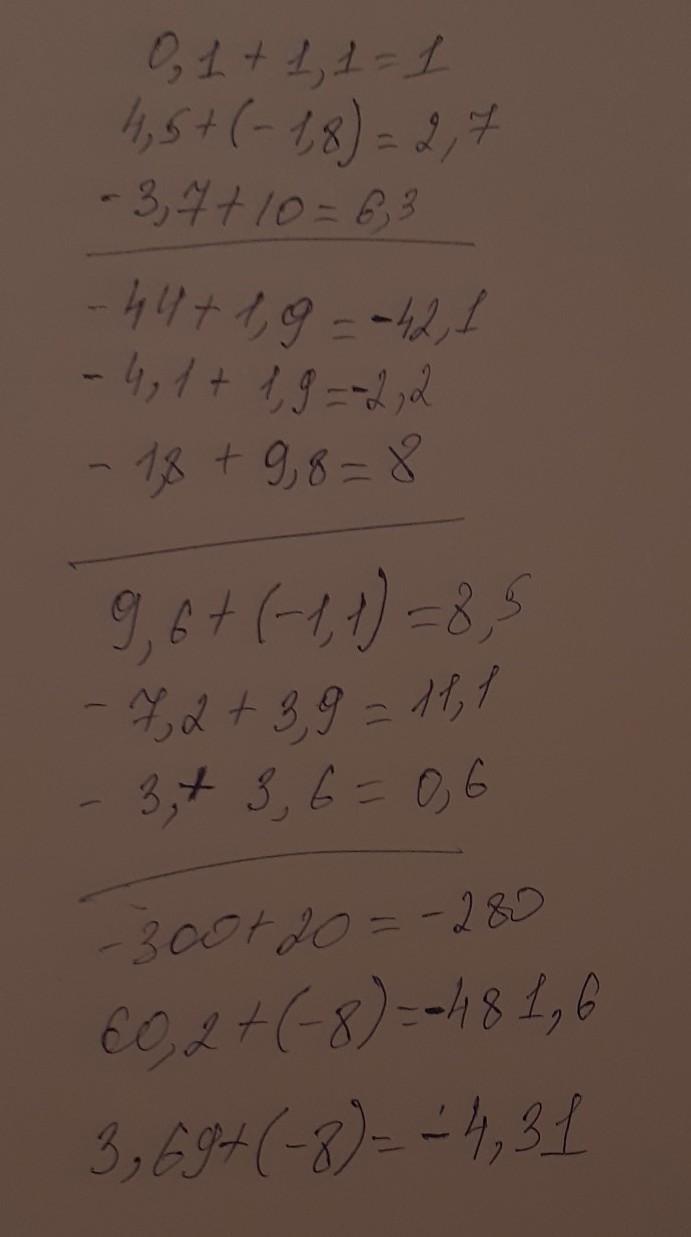 0,1 + 1,1 = 1
4,5 + (- 1,8) = 2,7
- 3,7 + 10 = 6,3
- 44 + 1,9 = -42,1
- 4,1 + 1,9 = -2,2
- 1,8 + 9,8 = 8
9,6 + (-1,1) = 8,5
- 7,2 + 3,9 = 11,1
- 3, + 3,6 = 0,6
-300 + 20 = -280
60,2 + (-8) = -481,6
3,69 + (-8) = -4,31